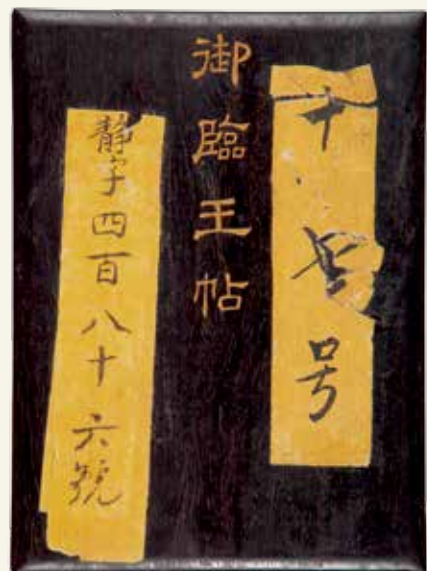 十号
御臨王帖
静字四百八十六號